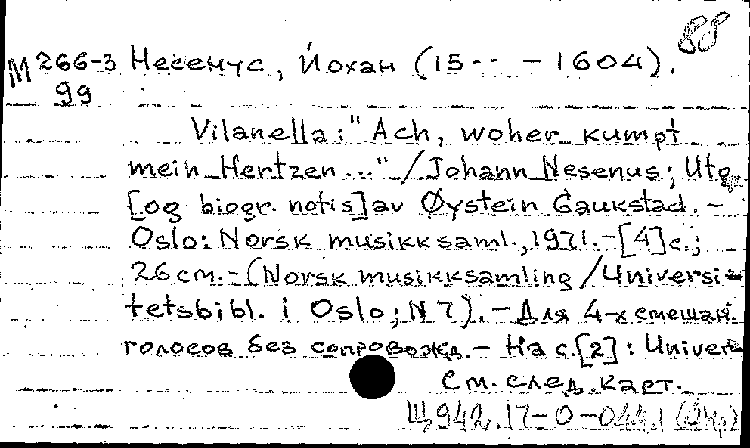 88
М 266-3 Несенус, Йохан (15·· – 1604).
99
Vilanella: "Ach, woher kumpt
mein Hertzen ..." / Johann Nesenus; Utg.
[og biogr. notis] av Øystein Gaukstad. –
Oslo: Norsk musikksaml., 1971. – [4] с.;
26 см. – (Norsk musikksamling / Universi-
tetsbibl. i Oslo; N 7). – Для 4-х смешан.
голосов без сопровожд. – На с. [2]: Univer-
См. след. карт.
Щ942.17-0-044.1